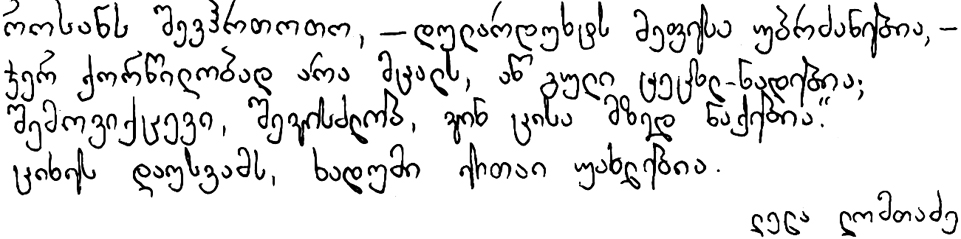 როსანს შევჰრთოთო, – დულარდუხტს მეფესა უბრძანებია, –
ჯერ ქორწილობად არა მცალს, აწ გული ცეცხლ-ნადებია;
შემოვიქცევი, შევისძლობ, ვინ ცისა მზედ ნაქებია.“
ციხეს დაუსვამს, ხადუმი ერთაი უახლებია.
ლელა ლომთაძე